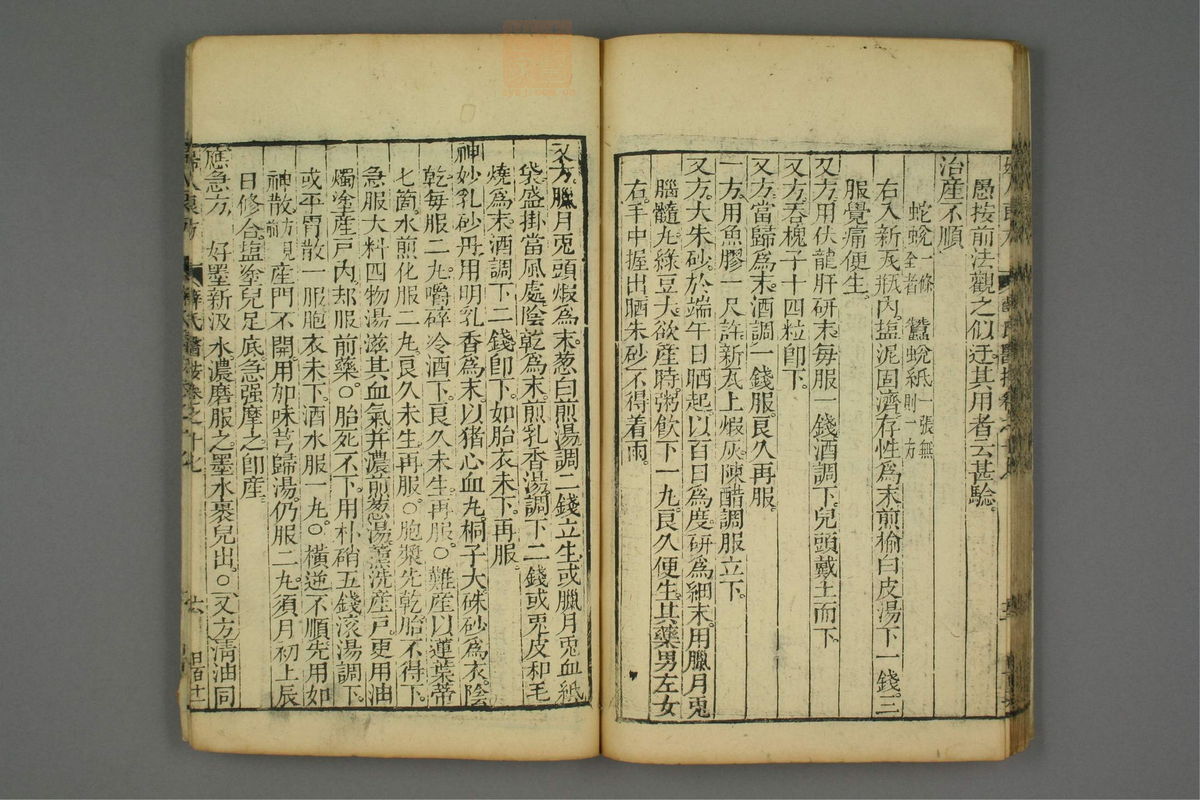 愚按前法觀之似迂其用者云甚驗。
治產不順
蛇蛻一條全者 蠶蛻紙一張無則一方
右入新瓦瓶內。塩泥固濟存性為末。煎榆白皮湯下一錢。三
服覺痛便生。
又方。用伏龍肝研末每服一錢酒調下。兒頭戴土而下
又方。吞槐子十四粒卽下。
又方。當歸為末。酒調一錢服。良久再服。
一方。用魚膠一尺許新瓦上煅灰陳醋調服立下。
又方。大朱砂。於端午日晒起。以百日為度。研為細末。用臘月兎
腦髓丸綠豆大。欲產時。粥飲下一丸。良久便生。其藥男左女
右。手中握出晒朱砂不得着雨。
又方。臘月兎頭煅為末。葱白煎湯調二錢立生或臘月兎血紙
袋盛掛當風處陰乾為末。煎乳香湯調下二錢或兎皮和毛
燒為末。酒調下二錢卽下。如胎衣未下。再服。
神妙乳砂丹。用明乳香為末以猪心血丸。桐子大硃砂為衣。陰
乾每服二丸。嚼碎冷酒下。良久未生。再服。○難產以蓮葉蒂
七箇。水煎化服二丸良久未生再服。○胞漿先乾胎不得下。
急服大料四物湯滋其血氣幷濃煎葱湯薰洗產戶。更用油
燭塗產戶內。却服前藥。○胎死不下用朴硝五錢滾湯調下。
或平胃散一服胞衣未下。酒水服一丸。○橫逆不順先用如
神散方見前產門不開用加味芎歸湯。仍服二丸。須月初上辰
日修合。塩塗兒足底急强摩之卽產。
應急方 好墨新汲水濃磨服之。墨水褁兒出。○又方清油同